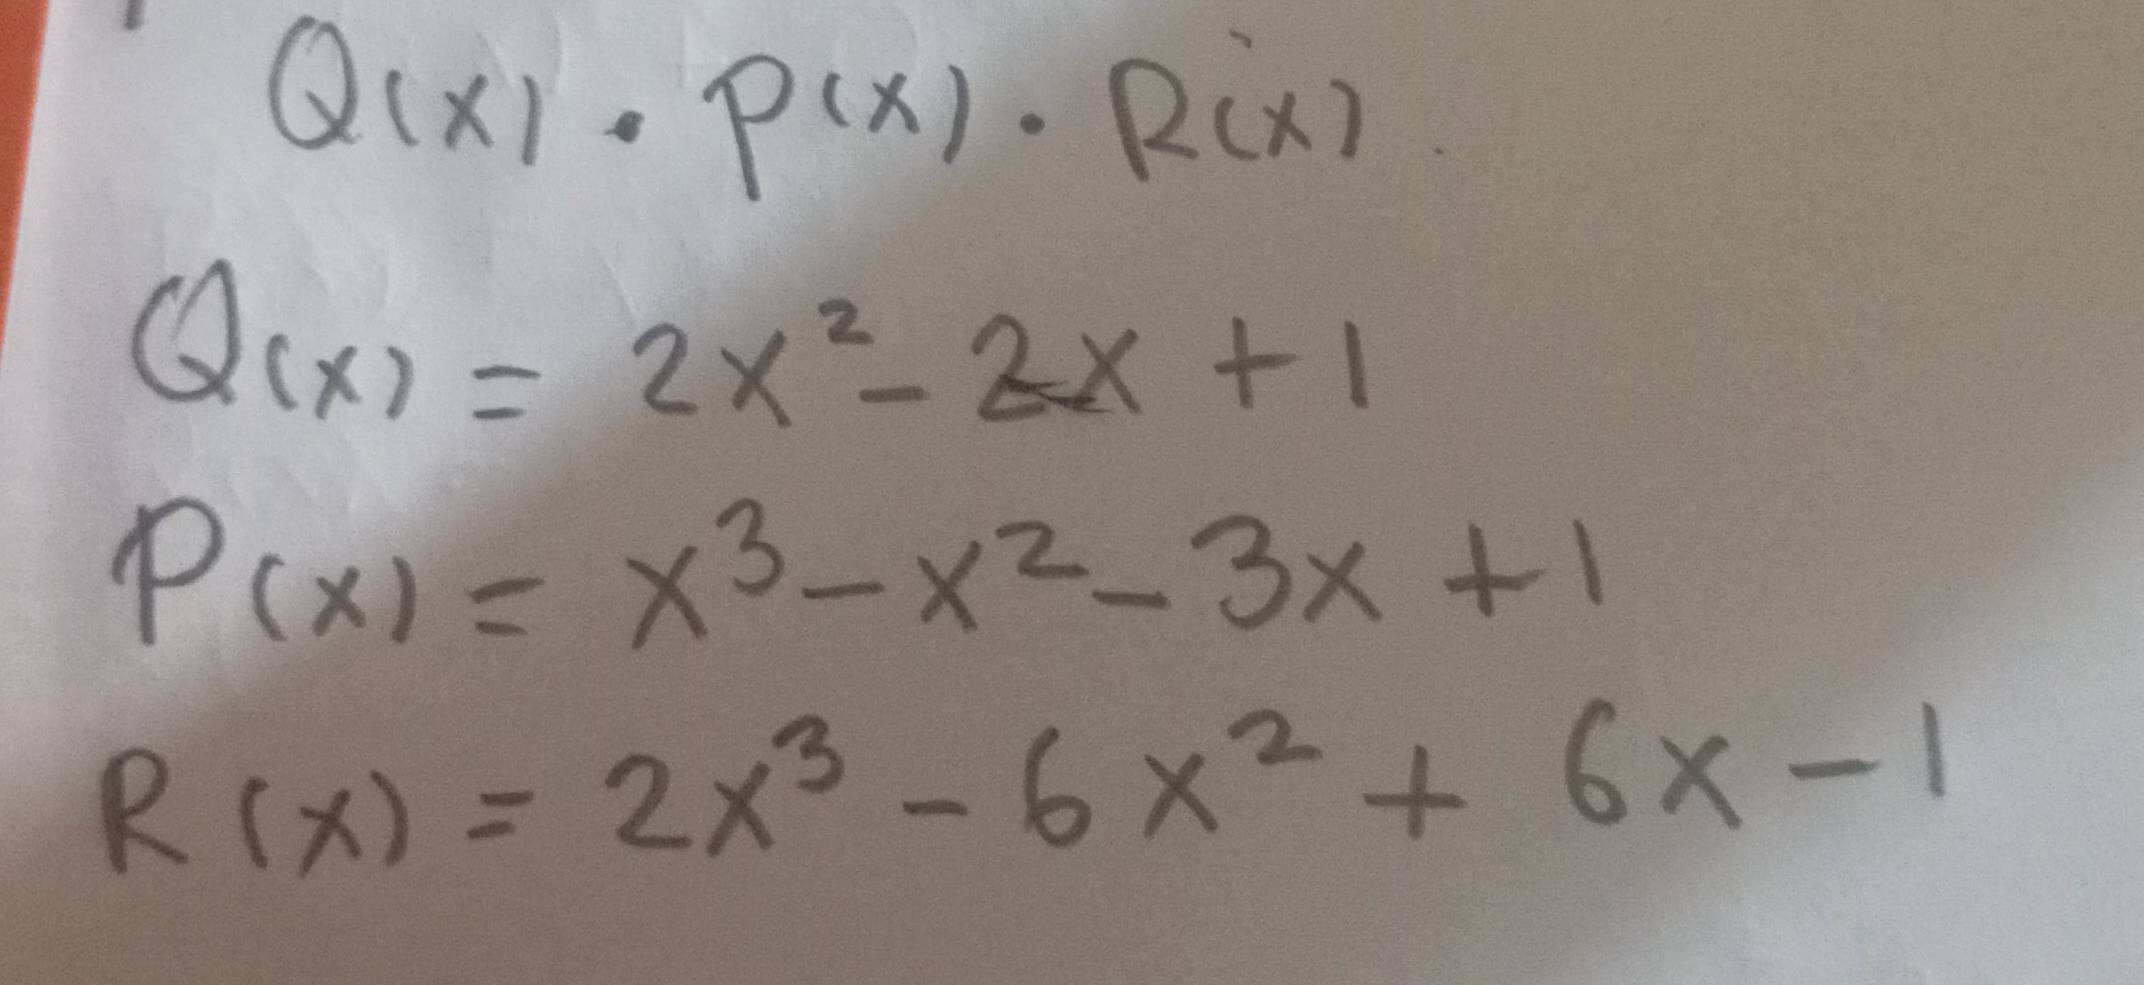 Q(x) · P(x) · R(x).
Q(x) = 2x² - 2x + 1
P(x) = x³ - x² - 3x + 1
R(x) = 2x³ - 6x² + 6x - 1